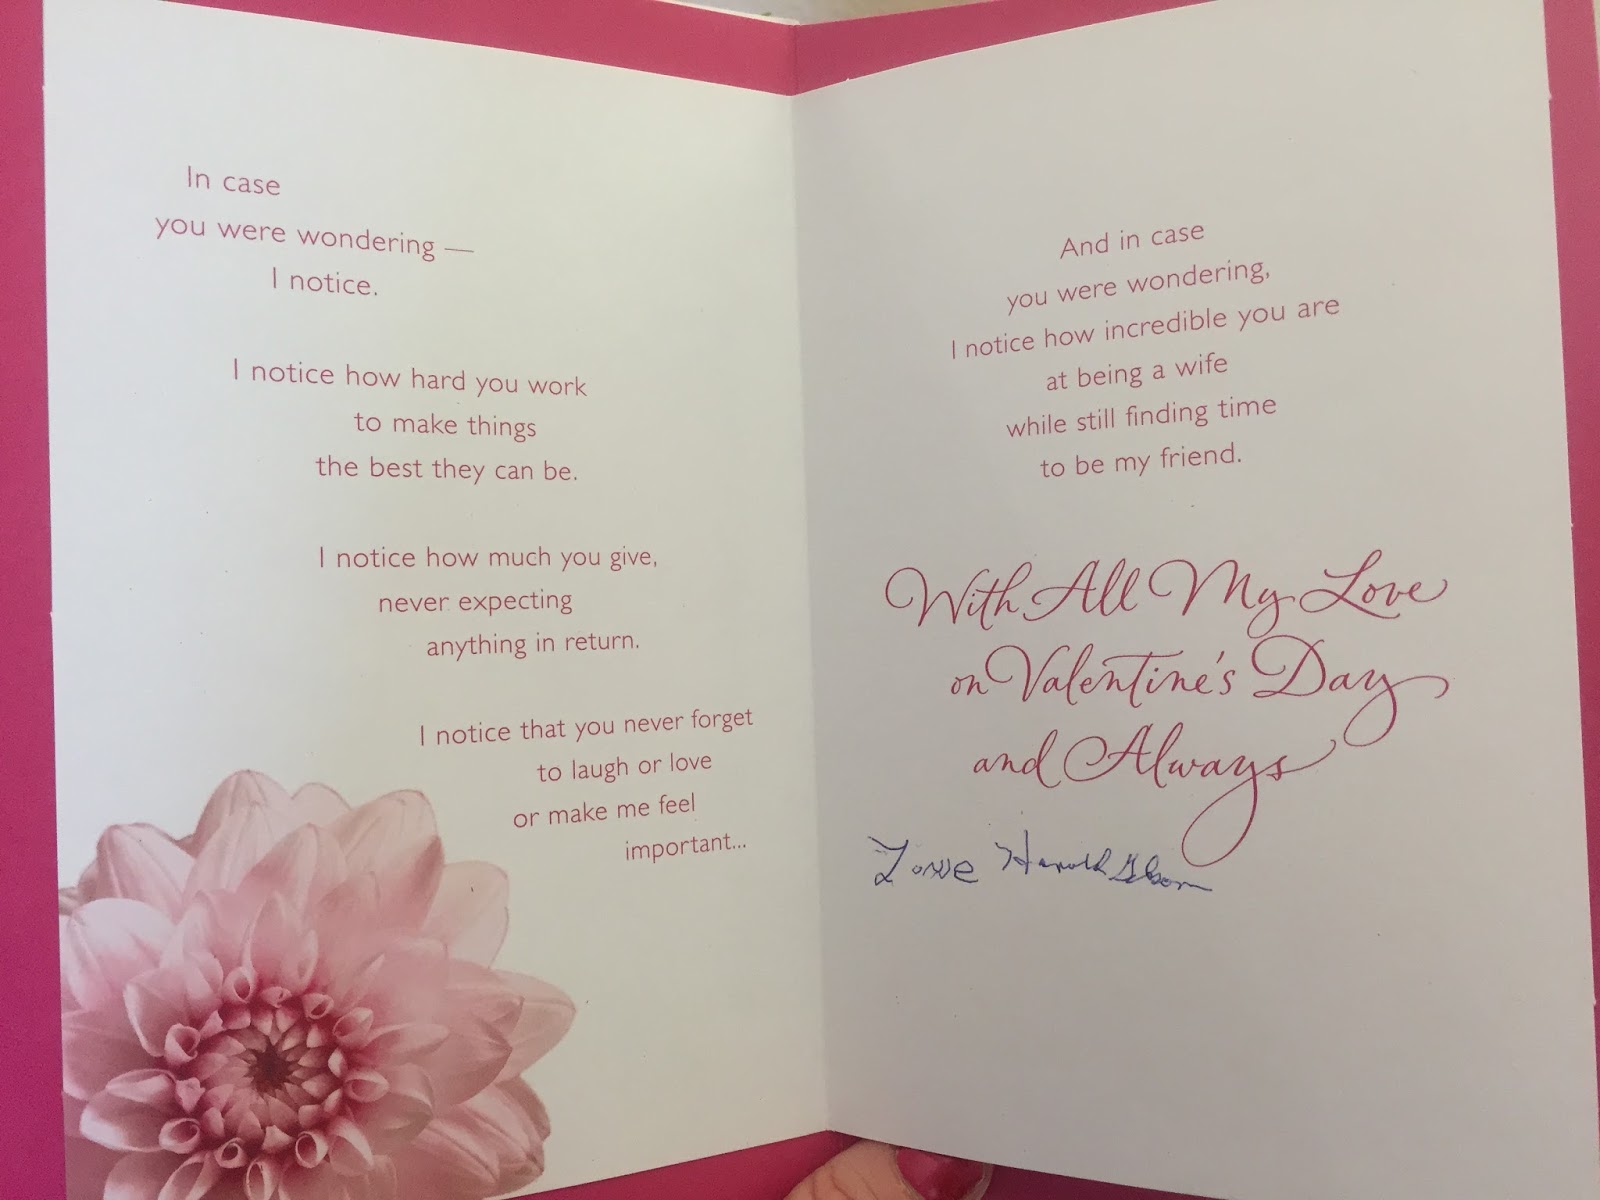 In case
you were wondering —
I notice.
I notice how hard you work
to make things
the best they can be.
I notice how much you give,
never expecting
anything in return.
I notice that you never forget
to laugh or love
or make me feel
important...
And in case
you were wondering,
I notice how incredible you are
at being a wife
while still finding time
to be my friend.
With All My Love
on Valentine's Day
and Always
Love Harold